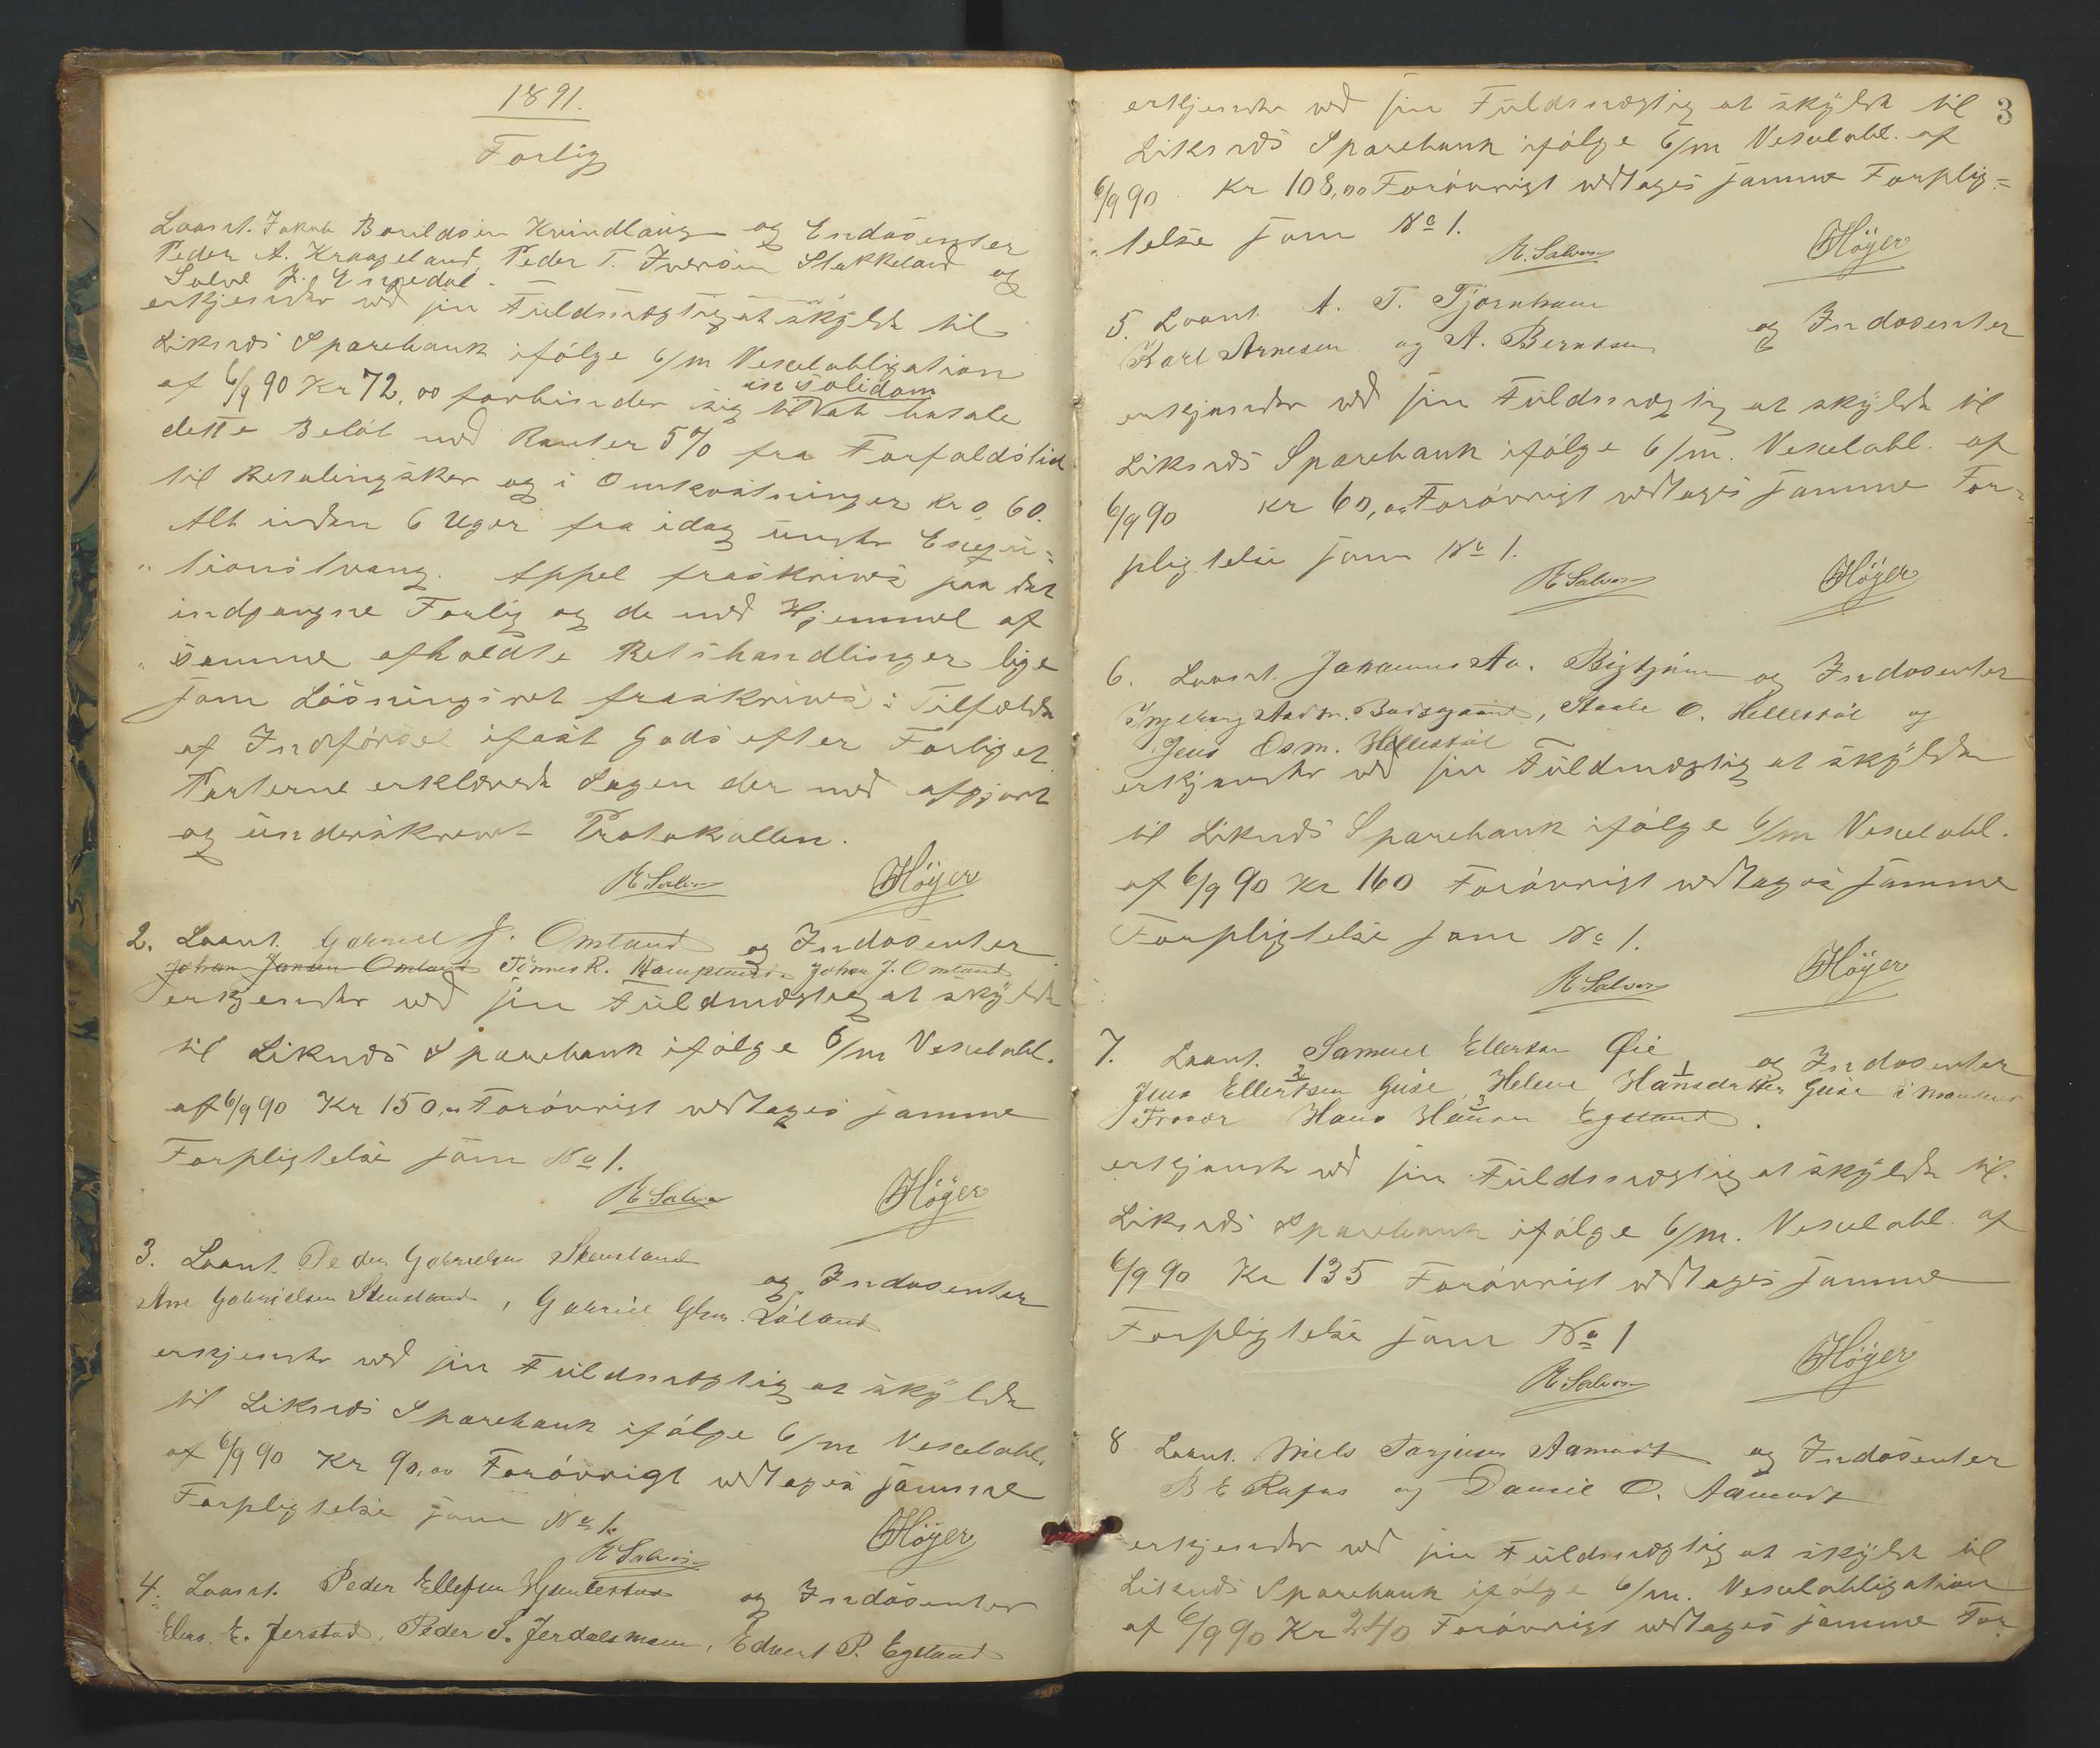 1891.
Forlig
Laant. Jakob Bourildsen Kvindlaug og Endosenter
Peder A. Kraageland, Peder T. Iversen Stakkeland og
Salve J. Egedal.
erkjender ved sin Fuldmægtig at skylde til
Liknæs Sparebank ifølge 6/m Vexelobligation
af 6/9 90 Kr 72,00 forbinder sig til in solidom at betale
dette Beløb med Renter 5 % fra Forfaldstid
til Betaling sker og i Omkostninger Kr 0,60.
Alt inden 6 Uger fra idag under Exequ=
"tionstvang. Appel fraskrives paa det
indgangne Forlig og de med Hjemmel af
" samme afholdte Retshandlinger lige
som Løsningsret fraskrives i Tilfælde
af Indførsel i fast Gods efter Forliget
Parterne erklærede Sagen dermed afgjort
og underskrevet Protokollen.
R Salves Höyer
2. Laant. Gabriel J. Omland og Indosenter
Johan Jansen Omland Tönnes R. Houpland. Johan J. Omland
erkjender ved sin Fuldmægtig at skylde
til Liknæs Sparebank ifølge 6/m Vexelobl.
af 6/9 90 Kr 150,00 Forøvrigt vedtages samme
Forpligtelse som No 1.
R Salves Höyer
3. Laant. Peder Gabrielsen Stensland
og Indosenter
Arne Gabrielsen Stensland, Gabriel Glsen. Löland
erkjender ved sin Fuldmægtig at skylde
til Liknæs Sparebank ifølge 6/m Vexelobl.
af 6/9 90 Kr 90,00 Forøvrigt vedtages samme
Forpligtelse som No 1.
R Salves Höyer
4. Laant. Peder Ellefsen og Indosenter
Elias. E. Jerstad, Peder S. Jerdalsmoen, Edvert P. Egeland
3
erkjender ved sin Fuldmægtig at skylde til
Liknæs Sparebank ifølge 6/m Vexelobl. af
6/9 90 Kr 108,00 Forøvrigt vedtages samme Forplig=
"telse som No 1.
R. Salves Höyer
5. Laant. A. T. Tjørnhom
og Indosenter
Karl Arnesen og A. Berntsen
erkjender ved sin Fuldmægtig at skylde til
Liknæs Sparebank ifølge 6/m. Vexelobl. af
6/9 90 Kr 60,00 Forøvrigt vedtages samme For=
pligtelse som No 1.
R Salves Höyer
6. Laant. Johannes Aa. og Indosenter
Ingeborg Aadtr. Busegaard, Staale O. Hellestøl og
Jens Osm. Hellestøl
erkjender ved sin Fuldmægtig at skylde
til Liknæs Sparebank ifølge 6/m Vexelobl.
af 6/9 90 Kr 160 Forøvrigt vedtages samme
Forpligtelse som No 1.
R Salves Höyer
7. Laant. Samuel Ellertsen Øie og Indosenter
Jens Ellertsen Guse, Helene Hansdatter Guse i Mandens
Fravær Hans Hansen Egeland.
erkjender ved sin Fuldmægtig at skylde til
Liknæs Sparebank ifølge 6/m. Vexelobl. af
6/9 90 Kr 135 Forøvrigt vedtages samme
Forpligtelse som No 1
R Salves Höyer
8 Laant. Niels Tarjusen Aamodt og Indosenter
B E Rafos og Daniel O. Aamodt
erkjender ved sin Fuldmægtig at skylde til
Liknæs Sparebank ifølge 6/m. Vexelobligation
af 6/9 90 Kr 240 Forøvrigt vedtages samme For